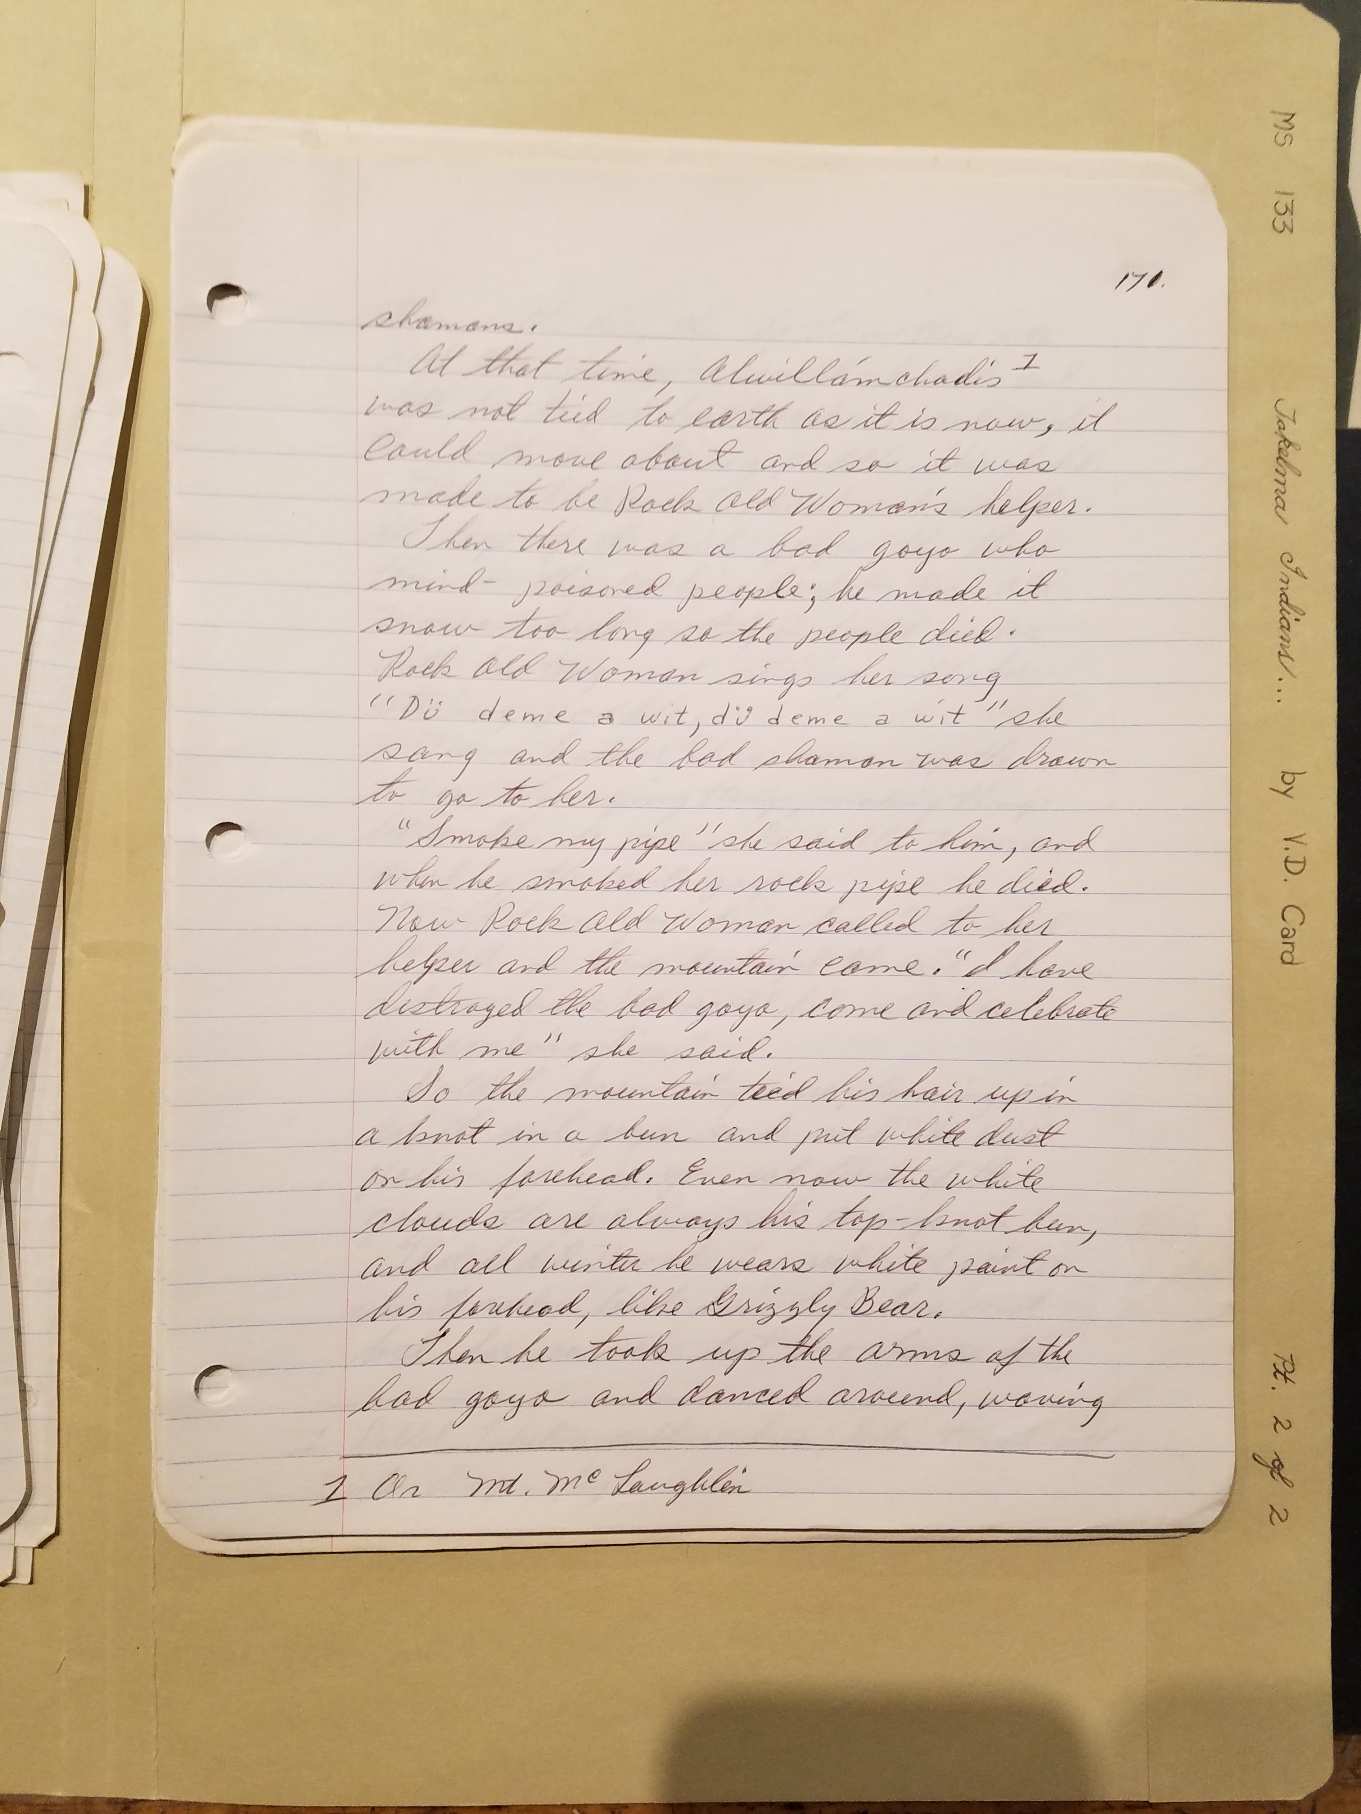 170.
shamans.
At that time, Alwillámchadis 1
was not tied to earth as it is now, it
could move about and so it was
made to be Rock Old Woman's helper.
Then there was a bad goyo who
mind-poisoned people; he made it
snow too long so the people died.
Rock Old Woman sings her song
"Dü deme a wit, dü deme a wit" she
sang and the bad shaman was drawn
to go to her.
"Smoke my pipe" she said to him, and
when he smoked her rock pipe he died.
Now Rock Old Woman called to her
helper and the mountain came. "I have
destroyed the bad goyo, come and celebrate
with me" she said.
So the mountain tied his hair up in
a knot in a bun and put white dust
on his forehead. Even now the white
clouds are always his top-knot bun,
and all winter he wears white paint on
his forehead, like Grizzly Bear.
Then he took up the arms of the
bad goyo and danced around, waving
1 Or Mt. McLaughlin
MS 133 Takelma Indians... by V.D. Card Pt. 2 of 2